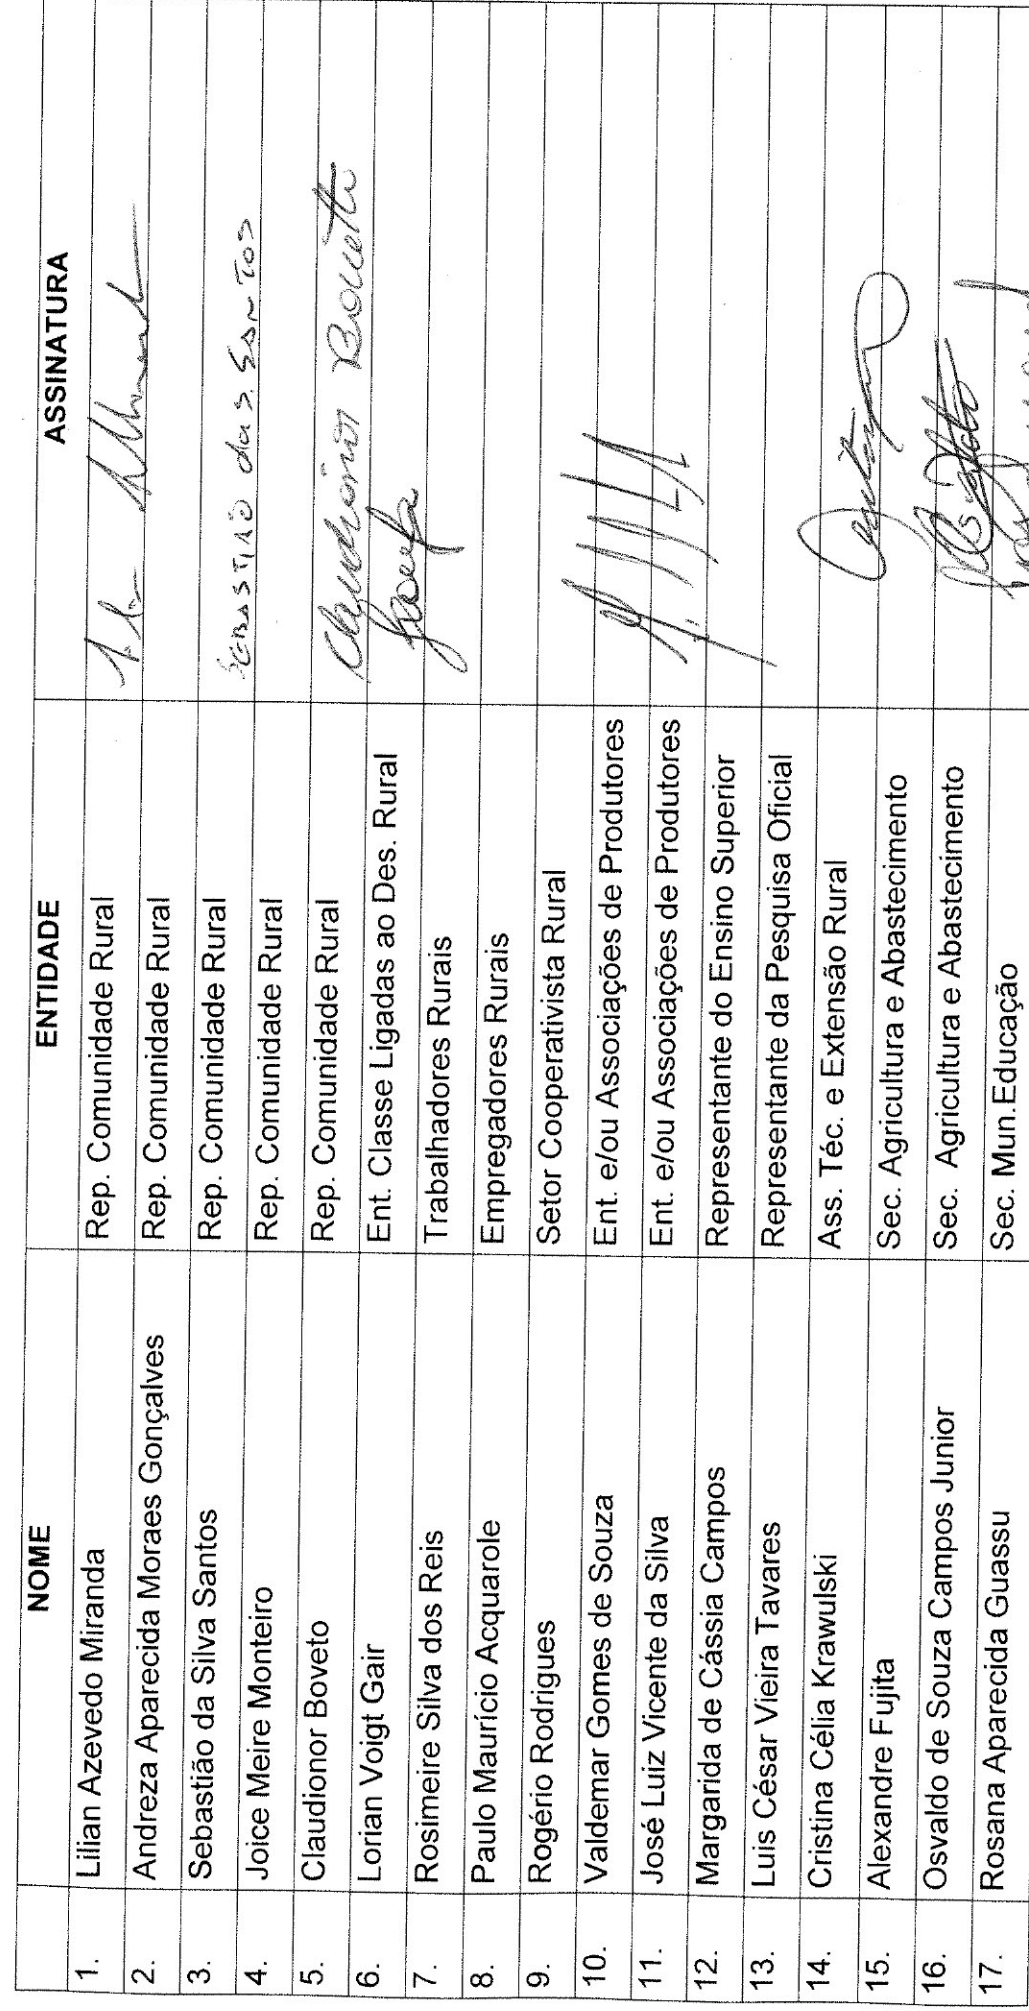 NOME ENTIDADE ASSINATURA
1. Lilian Azevedo Miranda Rep. Comunidade Rural
2. Andreza Aparecida Moraes Gonçalves Rep. Comunidade Rural
3. Sebastião da Silva Santos Rep. Comunidade Rural
4. Joice Meire Monteiro Rep. Comunidade Rural
5. Claudionor Boveto Rep. Comunidade Rural Claudionor
6. Lorian Voigt Gair Ent. Classe Ligadas ao Des. Rural
7. Rosimeire Silva dos Reis Trabalhadores Rurais
8. Paulo Maurício Acquarole Empregadores Rurais
9. Rogério Rodrigues Setor Cooperativista Rural
10. Valdemar Gomes de Souza Ent. e/ou Associações de Produtores
11. José Luiz Vicente da Silva Ent. e/ou Associações de Produtores
12. Margarida de Cássia Campos Representante do Ensino Superior
13. Luis César Vieira Tavares Representante da Pesquisa Oficial
14. Cristina Célia Krawulski Ass. Téc. e Extensão Rural
15. Alexandre Fujita Sec. Agricultura e Abastecimento
16. Osvaldo de Souza Campos Junior Sec. Agricultura e Abastecimento
17. Rosana Aparecida Guassu Sec. Mun.Educação